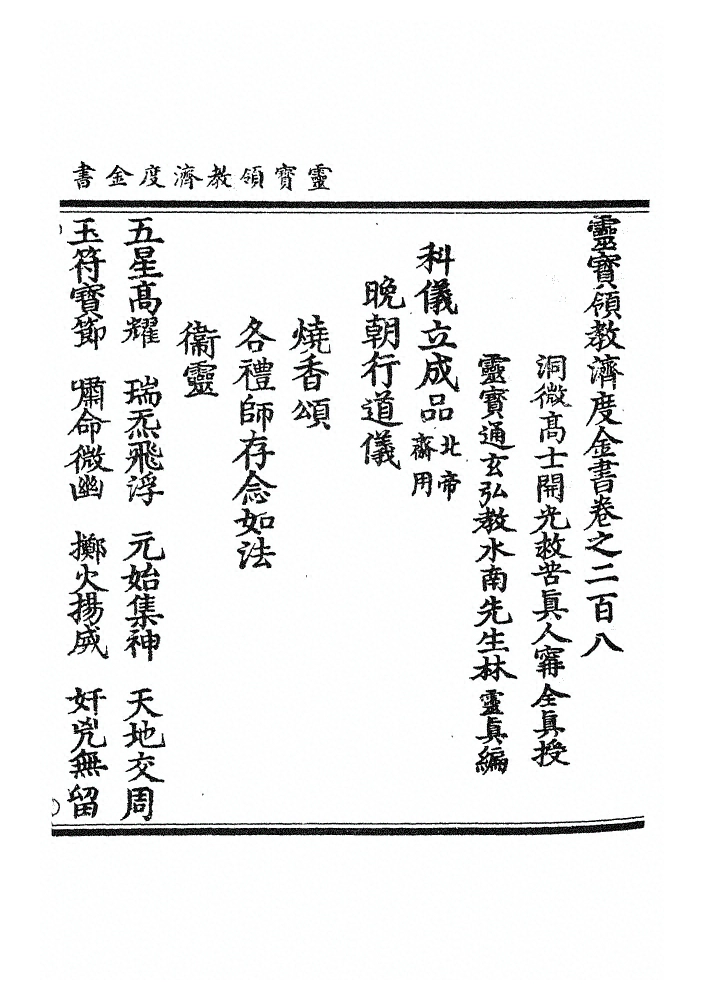 靈寶領教濟度金書
靈寶領教濟度金書卷之二百八
洞微高士開光救苦眞人寗全眞授
靈寶通玄弘教水南先生林靈眞編
科儀立成品 北帝齋用
晚朝行道儀
燒香頌
各禮師存念如法
衞靈
五星高耀 瑞炁飛浮 元始集神 天地交周
玉符寶節 嘯命微幽 擲火揚威 奸兇無留